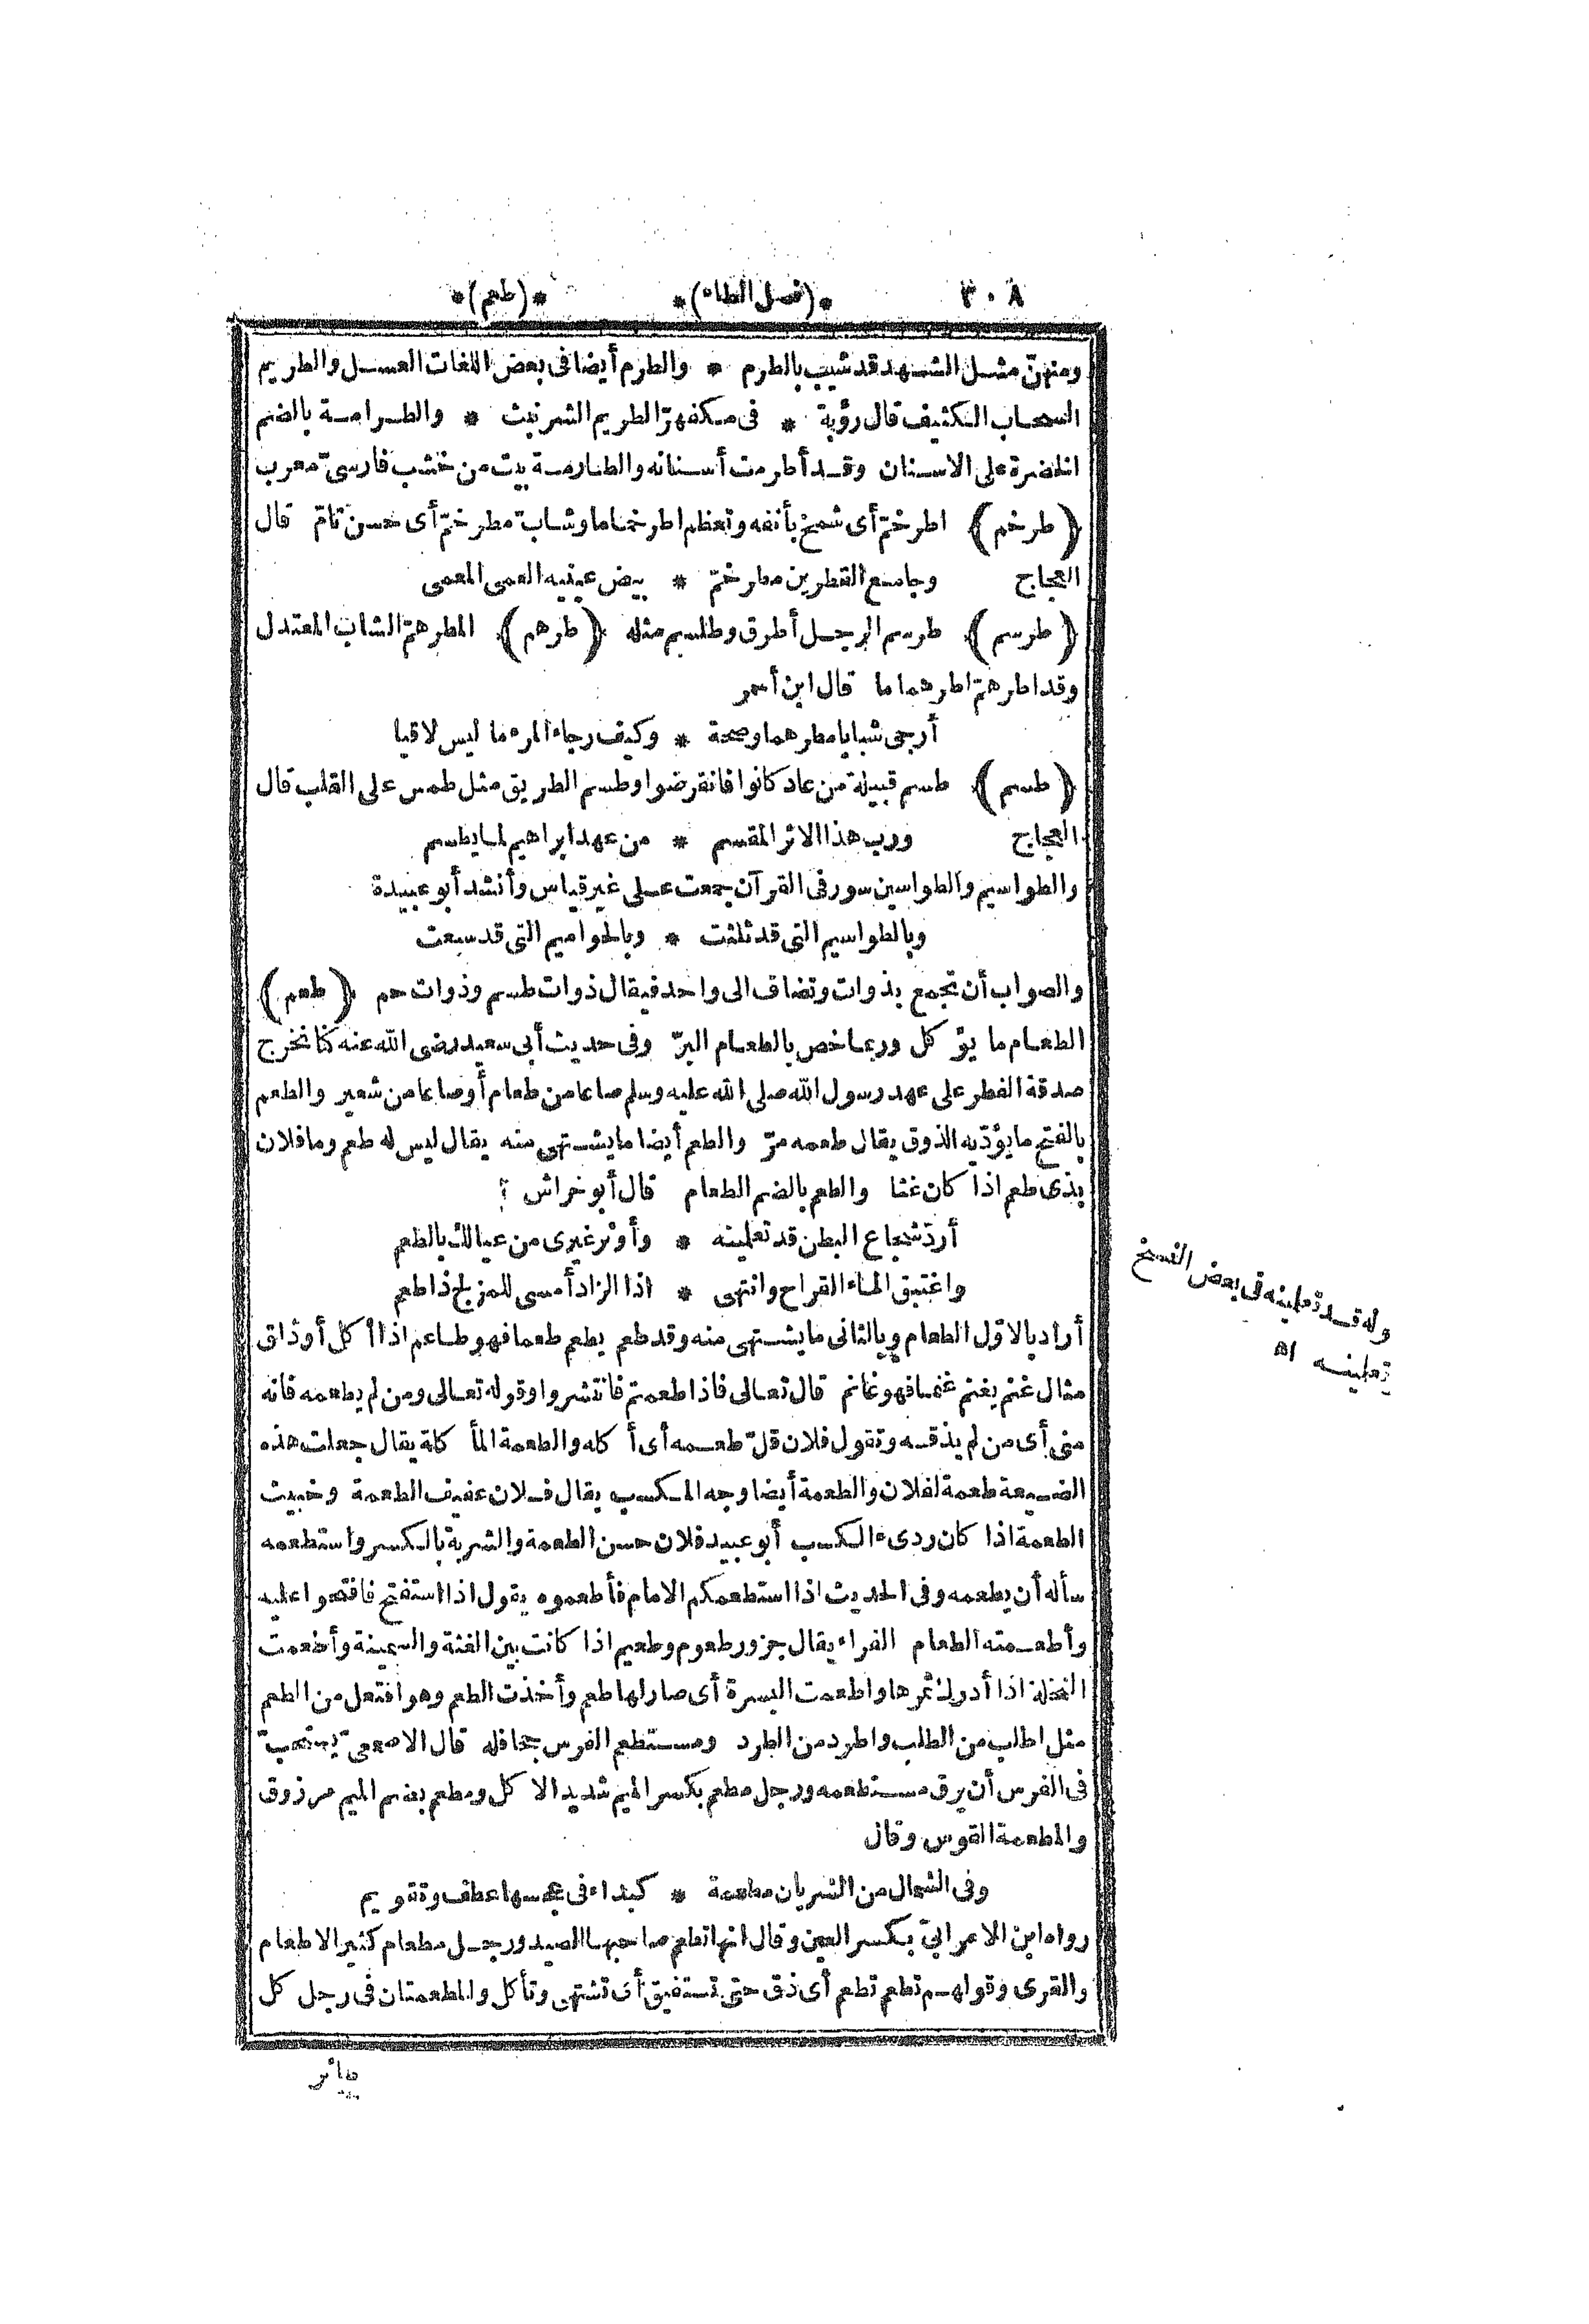 ٣٠٨ *(فصل الطاء)* *(طعم)*
ومنهنّ مثل الشهد قد شيب بالطرم * والطرم أيضا فى بعض اللغات العسل والطريم
السحاب الكثيف قال رؤبة * فى مكفهرّ الطريم الشرنبث * والطرامة بالضم
الخضرة على الاسنان وقد أطرمت أسنانه والطارمة بيت من خشب فارسىّ معرب
﴿طرخم﴾ اطرخمّ أى شمخ بأنفه وتعظم اطرخماما وشابّ مطرخمّ أى حسن تامّ قال
العجاج وجامع القطرين مطرخمّ * بيض عينيه العمى المعمى
﴿طرسم﴾ طرسم الرجل أطرق وطلسم مثله ﴿طرهم﴾ المطرهمّ الشاب المعتدل
وقد اطرهمّ اطرهماما قال ابن أحمر
أرجى شبابا مطرهما وصحة * وكيف رجاء المرء ما ليس لاقيا
﴿طسم﴾ طسم قبيلة من عاد كانوا فانقرضوا وطسم الطريق مثل طمس على القلب قال
العجاج ورب هذا الاثر المقسم * من عهد ابراهيم لما يطسم
والطواسيم والطواسين سور فى القرآن جمعت على غير قياس وأنشد أبو عبيدة
وبالطواسيم التى قد ثلثت * وبالحواميم التى قد سبعت
والصواب أن تجمع بذوات وتضاف الى واحد فيقال ذوات طسم وذوات حم ﴿طعم﴾
الطعام ما يؤكل وربما خص بالطعام البرّ وفى حديث أبى سعيد رضى الله عنه كنا نخرج
صدقة الفطر على عهد رسول الله صلى الله عليه وسلم صاعا من طعام أو صاعا من شعير والطعم
بالفتح ما يؤدّيه الذوق يقال طعمه مرّ والطعم أيضا ما يشتهى منه يقال ليس له طعم وما فلان
بذى طعم اذا كان غثا والطعم بالضم الطعام قال أبو خراش
أردّ شجاع البطن قد تعلمينه * وأوثر غيرى من عيالك بالطعم
واغتبق الماء القراح وانتهى * اذا الزاد أمسى للمزلج ذا طعم
أراد بالاوّل الطعام وبالثانى ما يشتهى منه وقد طعم يطعم طعما فهو طاعم اذا أكل أو ذاق
مثال غنم يغنم غنما فهو غانم قال تعالى فاذا طعمتم فانتشروا وقوله تعالى ومن لم يطعمه فانه
منى أى من لم يذقه وتقول فلان قلّ طعمه أى أكله والطعمة المأكلة يقال جعلت هذه
الضيعة طعمة لفلان والطعمة أيضا وجه المكسب يقال فلان عفيف الطعمة وخبيث
الطعمة اذا كان ردىء الكسب أبو عبيد فلان حسن الطعمة والشربة بالكسر واستطعمه
سأله أن يطعمه وفى الحديث اذا استطعمكم الامام فأطعموه يقول اذا استفتح فافتحوا عليه
وأطعمته الطعام الفراء يقال جزور طعوم وطعيم اذا كانت بين الغثة والسمينة وأطعمت
النخلة اذا أدرك ثمرها واطعمت البسرة أى صار لها طعم وأخذت الطعم وهو افتعل من الطعم
مثل اطلب من الطلب واطرد من الطرد ومستطعم الفرس جحافله قال الاصمعىّ يستحبّ
فى الفرس أن يرق مستطعمه ورجل مطعم بكسر الميم شديد الاكل ومطعم بضم الميم مرزوق
والمطعمة القوس وقال
وفى الشمال من الشريان مطعمة * كبداء فى عجسها عطف وتقويم
رواه ابن الاعرابىّ بكسر العين وقال انها تطعم صاحبها الصيد ورجل مطعام كثير الاطعام
والقرى وقولهم تطعم تطعم أى ذق حتى تستفيق أى تشتهى وتأكل والمطعمتان فى رجل كل
طائر
وله قد تعلمينه فى بعض النسخ
تعلينه اه